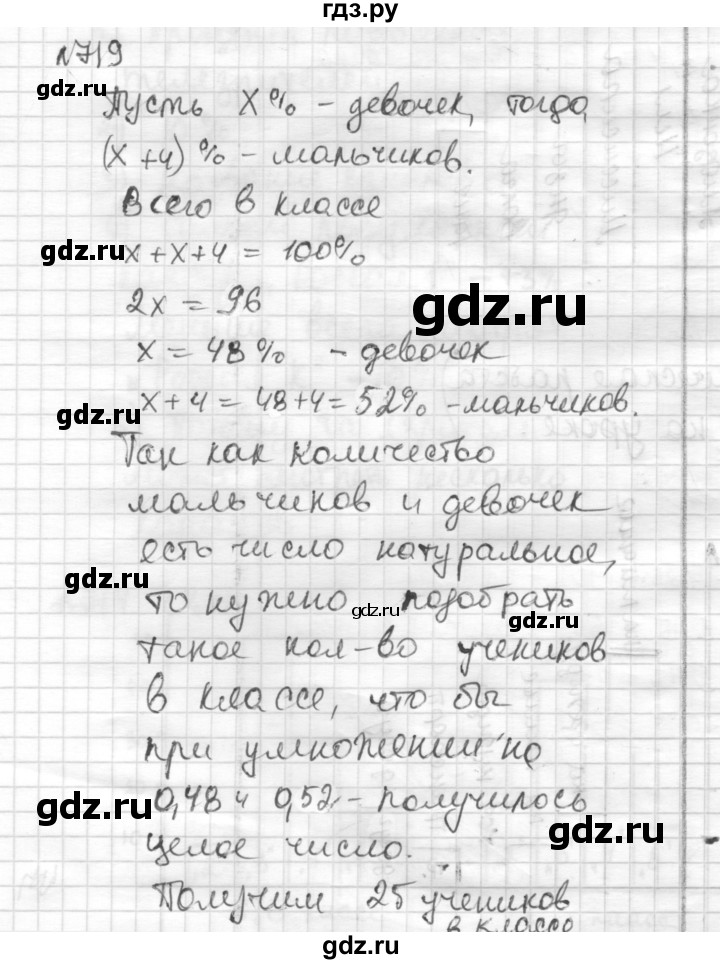 гдз.ру
№719
gdz.ru
Пусть x% - девочек, тогда
(x+4)% - мальчиков.
gdz.ru
Всего в классе
gdz.ru
x+x+4 = 100%
2x = 96
gdz.ru
x = 48% - девочек
x+4 = 48+4 = 52% - мальчиков.
gdz.ru
Так как количество
мальчиков и девочек
есть число натуральное,
gdz.ru
то нужно подобрать
gdz.ru
gdz.ru
такое кол-во учеников
в классе, что бы
при умножении на
0,48 и 0,52 - получилось
gdz.ru
gdz.ru
целое число.
Получим 25 учеников
в классе
gdz.ru